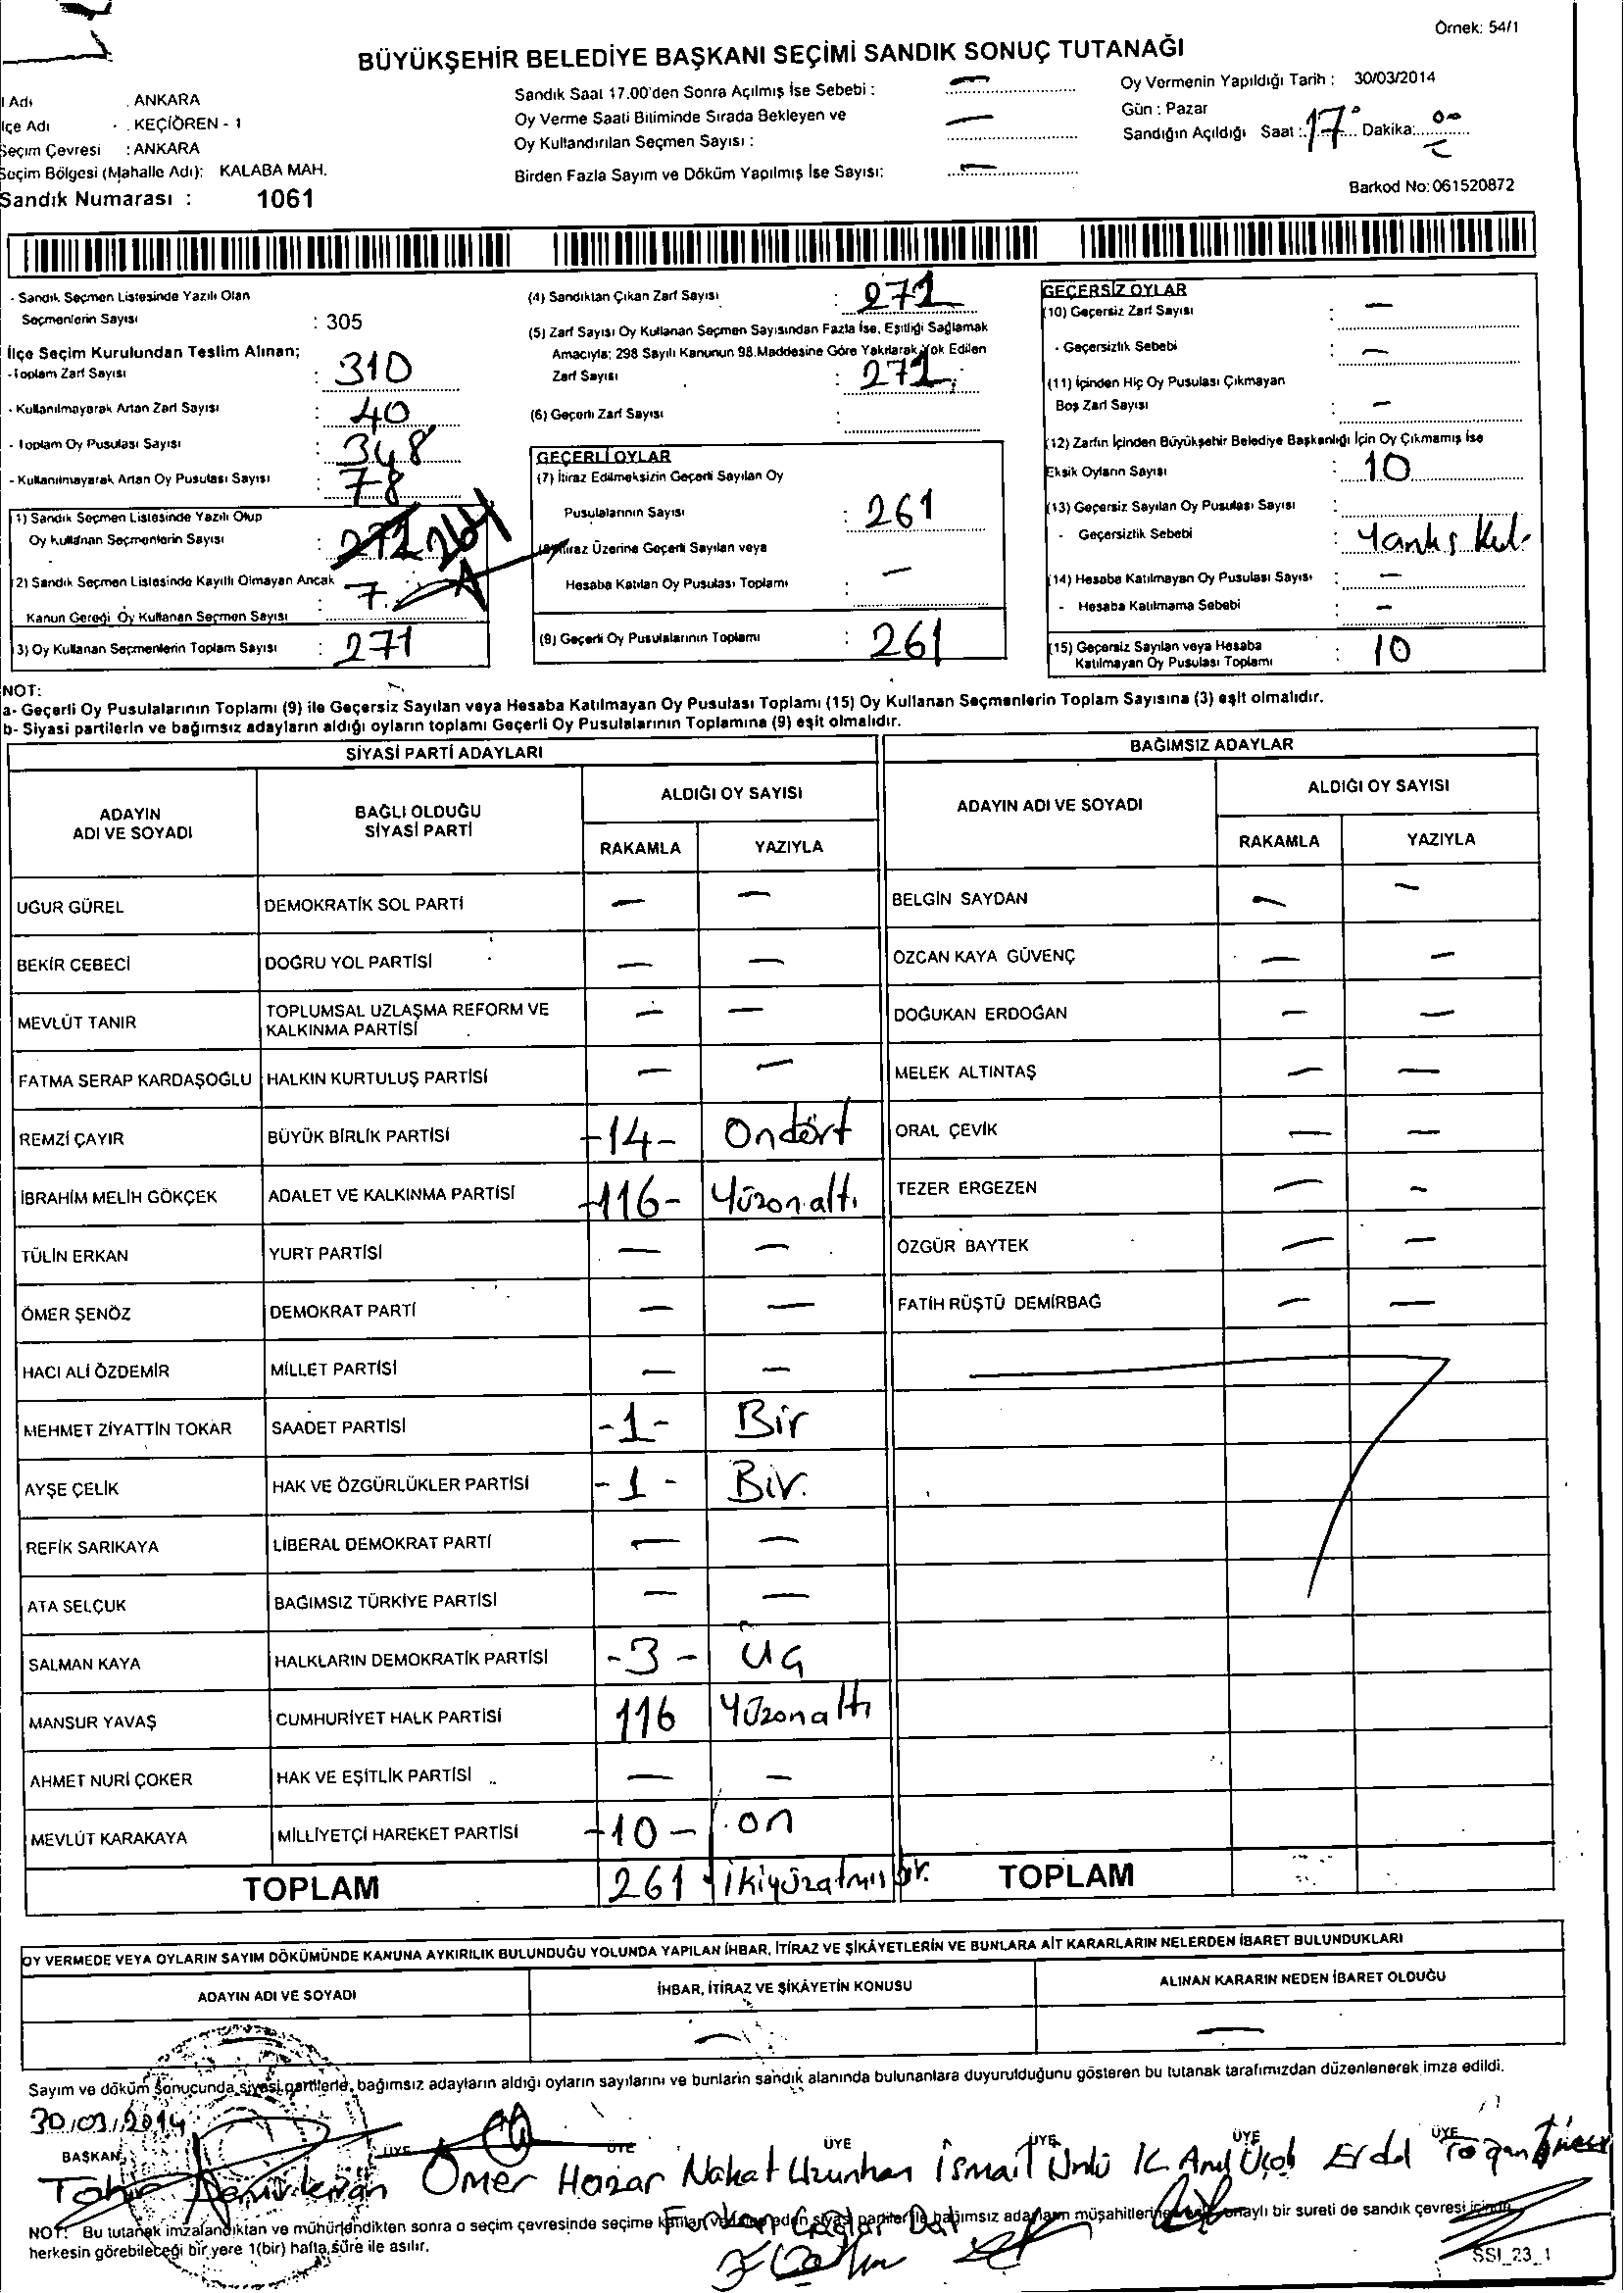 Örnek: 54/1
BÜYÜKŞEHİR BELEDİYE BAŞKANI SEÇİMİ SANDIK SONUÇ TUTANAĞI
İ Adı : ANKARA
İlçe Adı : KEÇİÖREN - 1
Seçim Çevresi : ANKARA
Seçim Bölgesi (Mahalle Adı): KALABA MAH.
Sandık Numarası : 1061
Sandık Saat 17.00'den Sonra Açılmış İse Sebebi : —
Oy Verme Saati Bitiminde Sırada Bekleyen ve
Oy Kullandırılan Seçmen Sayısı : —
Birden Fazla Sayım ve Döküm Yapılmış İse Sayısı: —
Oy Vermenin Yapıldığı Tarih : 30/03/2014
Gün : Pazar
Sandığın Açıldığı Saat : 17 Dakika: 00
Barkod No: 061520872
- Sandık Seçmen Listesinde Yazılı Olan
Seçmenlerin Sayısı : 305
İlçe Seçim Kurulundan Teslim Alınan;
- Toplam Zarf Sayısı : 310
- Kullanılmayarak Artan Zarf Sayısı : 40
- Toplam Oy Pusulası Sayısı : 348
- Kullanılmayarak Artan Oy Pusulası Sayısı : 78
(1) Sandık Seçmen Listesinde Yazılı Olup
Oy kullanan Seçmenlerin Sayısı : 264
(2) Sandık Seçmen Listesinde Kayıtlı Olmayan Ancak
Kanun Gereği Oy Kullanan Seçmen Sayısı : 7
(3) Oy Kullanan Seçmenlerin Toplam Sayısı : 271
(4) Sandıktan Çıkan Zarf Sayısı : 271
(5) Zarf Sayısı Oy Kullanan Seçmen Sayısından Fazla İse, Eşitliği Sağlamak
Amacıyla; 298 Sayılı Kanunun 98.Maddesine Göre Yakılarak Yok Edilen
Zarf Sayısı : 271
(6) Geçerli Zarf Sayısı :
GEÇERLİ OYLAR
(7) İtiraz Edilmeksizin Geçerli Sayılan Oy
Pusulalarının Sayısı : 261
(8) İtiraz Üzerine Geçerli Sayılan veya
Hesaba Katılan Oy Pusulası Toplamı : —
(9) Geçerli Oy Pusulalarının Toplamı : 261
GEÇERSİZ OYLAR
(10) Geçersiz Zarf Sayısı : —
- Geçersizlik Sebebi : —
(11) İçinden Hiç Oy Pusulası Çıkmayan
Boş Zarf Sayısı : —
(12) Zarfın İçinden Büyükşehir Belediye Başkanlığı İçin Oy Çıkmamış İse
Eksik Oyların Sayısı : 10
(13) Geçersiz Sayılan Oy Pusulası Sayısı :
- Geçersizlik Sebebi : Yanlış Kul.
(14) Hesaba Katılmayan Oy Pusulası Sayısı : —
- Hesaba Katılmama Sebebi : —
(15) Geçersiz Sayılan veya Hesaba
Katılmayan Oy Pusulası Toplamı : 10
NOT:
a- Geçerli Oy Pusulalarının Toplamı (9) ile Geçersiz Sayılan veya Hesaba Katılmayan Oy Pusulası Toplamı (15) Oy Kullanan Seçmenlerin Toplam Sayısına (3) eşit olmalıdır.
b- Siyasi partilerin ve bağımsız adayların aldığı oyların toplamı Geçerli Oy Pusulalarının Toplamına (9) eşit olmalıdır.
SİYASİ PARTİ ADAYLARI BAĞIMSIZ ADAYLAR
ADAYIN ADI VE SOYADI BAĞLI OLDUĞU SİYASİ PARTİ ALDIĞI OY SAYISI ADAYIN ADI VE SOYADI ALDIĞI OY SAYISI
RAKAMLA YAZIYLA RAKAMLA YAZIYLA
UĞUR GÜREL DEMOKRATİK SOL PARTİ — — BELGİN SAYDAN — —
BEKİR CEBECİ DOĞRU YOL PARTİSİ — — ÖZCAN KAYA GÜVENÇ — —
MEVLÜT TANIR TOPLUMSAL UZLAŞMA REFORM VE KALKINMA PARTİSİ — — DOĞUKAN ERDOĞAN — —
FATMA SERAP KARDAŞOĞLU HALKIN KURTULUŞ PARTİSİ — — MELEK ALTINTAŞ — —
REMZİ ÇAYIR BÜYÜK BİRLİK PARTİSİ -14- Ondört ORAL ÇEVİK — —
İBRAHİM MELİH GÖKÇEK ADALET VE KALKINMA PARTİSİ -116- Yüzonaltı TEZER ERGEZEN — —
TÜLİN ERKAN YURT PARTİSİ — — ÖZGÜR BAYTEK — —
ÖMER ŞENÖZ DEMOKRAT PARTİ — — FATİH RÜŞTÜ DEMİRBAĞ — —
HACI ALİ ÖZDEMİR MİLLET PARTİSİ — —
MEHMET ZİYATTİN TOKAR SAADET PARTİSİ -1- Bir
AYŞE ÇELİK HAK VE ÖZGÜRLÜKLER PARTİSİ -1- Bir.
REFİK SARIKAYA LİBERAL DEMOKRAT PARTİ — —
ATA SELÇUK BAĞIMSIZ TÜRKİYE PARTİSİ — —
SALMAN KAYA HALKLARIN DEMOKRATİK PARTİSİ -3- Üç
MANSUR YAVAŞ CUMHURİYET HALK PARTİSİ 116 Yüzonaltı
AHMET NURİ ÇOKER HAK VE EŞİTLİK PARTİSİ — —
MEVLÜT KARAKAYA MİLLİYETÇİ HAREKET PARTİSİ -10- on
TOPLAM 261 ikiyüzatmışbir. TOPLAM
OY VERMEDE VEYA OYLARIN SAYIM DÖKÜMÜNDE KANUNA AYKIRILIK BULUNDUĞU YOLUNDA YAPILAN İHBAR, İTİRAZ VE ŞİKÂYETLERİN VE BUNLARA AİT KARARLARIN NELERDEN İBARET BULUNDUKLARI
ADAYIN ADI VE SOYADI İHBAR, İTİRAZ VE ŞİKÂYETİN KONUSU ALINAN KARARIN NEDEN İBARET OLDUĞU
— —
Sayım ve döküm sonucunda siyasi partilerle, bağımsız adayların aldığı oyların sayılarını ve bunların sandık alanında bulunanlara duyurulduğunu gösteren bu tutanak tarafımızdan düzenlenerek imza edildi.
30/03/2014
BAŞKAN ÜYE ÜYE ÜYE ÜYE ÜYE ÜYE
Ömer Hazar Nahat Uzunhan İsmail Ünlü
Furkan Çağlar Dal
NOT: Bu tutanak imzalandıktan ve mühürlendikten sonra o seçim çevresinde seçime katılan siyasi partiler ile bağımsız adayların müşahitlerine onaylı bir sureti de sandık çevresi içinde
herkesin görebileceği bir yere 1(bir) hafta süre ile asılır.
SSI_23_1